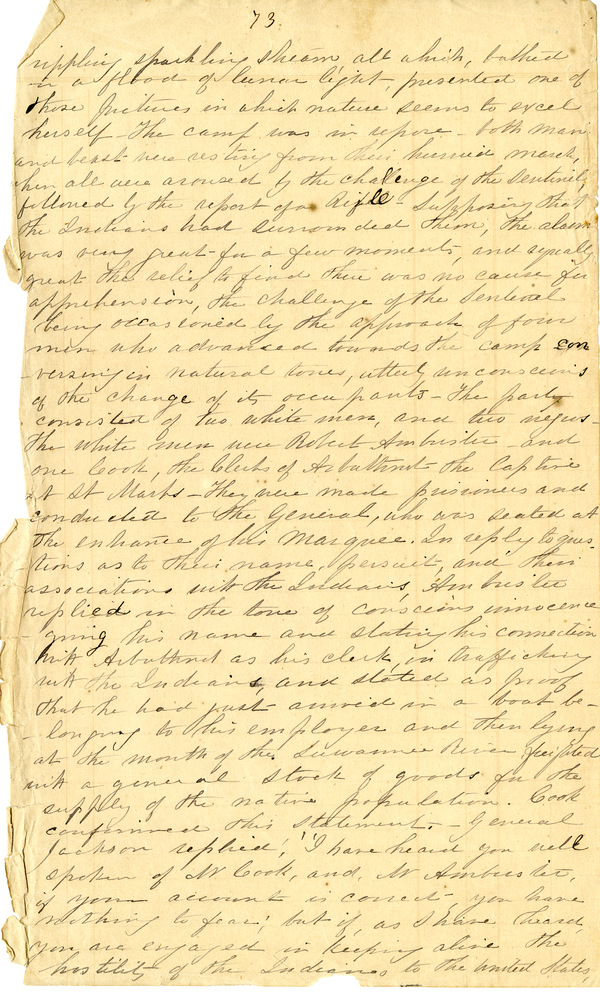 73
rippling sparkling stream, all which, bathed
in a flood of lunar light, presented one of
those pictures in which nature seems to excel
herself - The camp was in repose - both man
and beast were resting from their hurried march,
when all were aroused by the challenge of the Sentinel,
followed by the report of a Rifle - Supposing that
the Indians had surrounded them, the alarm
was very great for a few moments, and equally
great the relief to find there was no cause for
apprehension, the challenge of the Sentinel
being occasioned by the approach of four
men who advanced towards the camp con
-versing in natural tones, utterly unconscious
of the change of its occupants - The party
consisted of two white men, and two negros -
The white men were Robert Ambuster - and
one Cook, the Clerks of Arbuthnut the Captive
at St Marks - They were made prisioners and
conducted to the General, who was seated at
the entrance of his Marquee. In reply to ques
-tions as to their name, persuit, and their
associations with the Indians, Ambuster
replied in the tone of conscious innocence
-giving his name and stating his connection
with Arbuthnut as his clerk, in trafficking
with the Indians, and stated as proof
that he had just arrived in a boat be-
-longing to his employer and then lying
at the mouth of the Suwannee River freighted
with a general stock of goods for the
supply of the native population. Cook
confirmed this statement. - General
Jackson replied, 'I have heard you well
spoken of Mr Cook, and, Mr Ambuster,
if your account is correct, you have
nothing to fear; but if, as I have heard,
you are engaged in keeping alive the
hostility of the Indians to the United States,